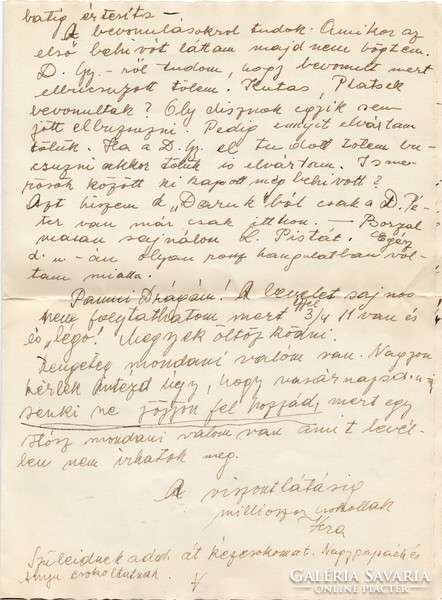 batig értesíts –
A bevonulásokról tudok. Amikor az
első behívót láttam majdnem bőgtem.
D. Gy. - ről tudom, hogy bevonult mert
elbucsuzott tőlem. Kutas, Platsek
bevonultak? Oly disznók egyik sem
jött elbuzsuzni. Pedig ennyit elvártam
tőlük. Ha a D. Gy. el tudott tőlem bu-
csuzni akkor tőlük is elvártam. Isme-
rősök között ki kapott még behivott?
Azt hiszem a „Daruk"ból csak a D. Pé-
ter van már csak itthon. — Borzal-
masan sajnálom L. Pistát. Egész
d. u - án olyan rossz hangulatban vol-
tam miatta.
Pannni Drágám! A levelet sajnos
nem folytathatom mert fél
3/4 11 van és
és „légó"! Megyek öltözködni.
Rengeteg mondani valóm van. Nagyon
kérlek intézd ugy, hogy vasárnap d. u
senki ne jöjjön fel hozzád, mert egy
csősz mondani valóm van amit levél-
ben nem irhatok meg.
A viszontlátásig
milliószor csókollak
Vera
Szüleidnek adod át kézcsókomat. Nagypapáék és
Anyu csókoltatnak.
V
GALÉRIA SAVARIA
ONLINE PIACTÉR